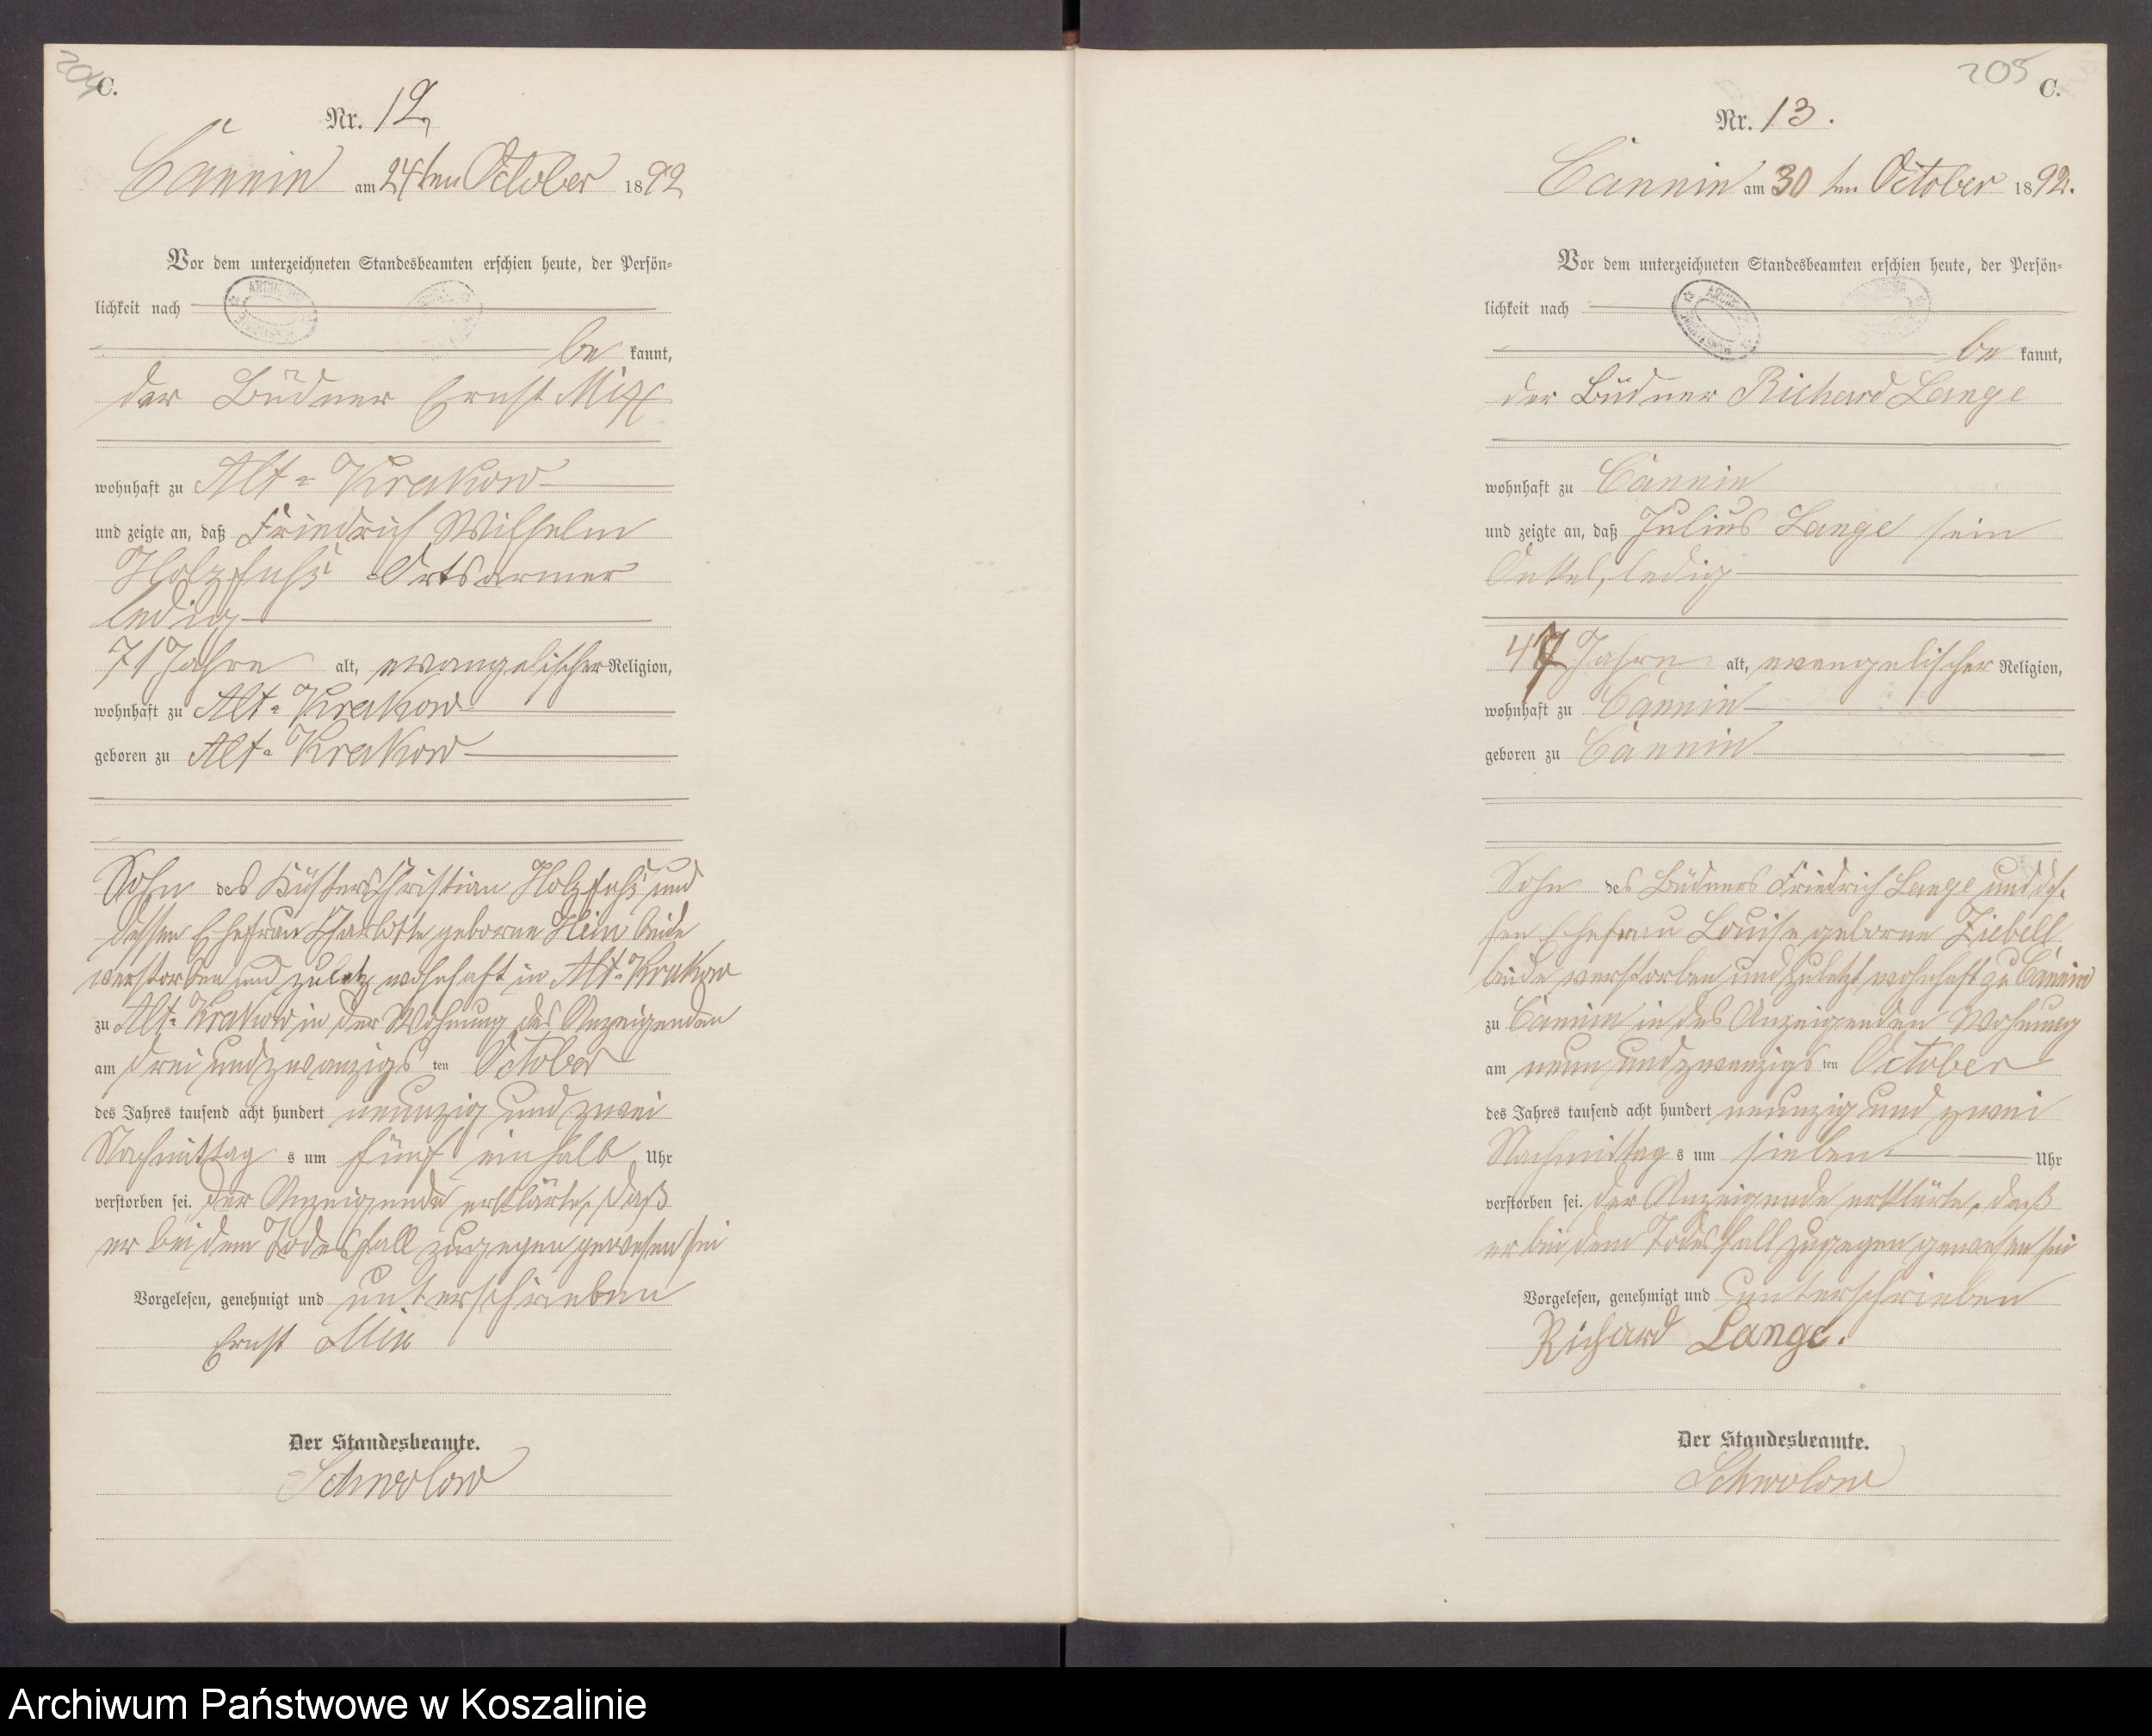 204
C.
Nr. 12
Cannin am 24ten October 1892
Vor dem unterzeichneten Standesbeamten erschien heute, der Persön-
lichkeit nach
be kannt,
der Büdner Ernst Mix
wohnhaft zu Alt-Krakow
und zeigte an, daß Friedrich Wilhelm
Holzfuhs Ortsarmer
ledig
71 Jahre alt, evangelischer Religion,
wohnhaft zu Alt-Krakow
geboren zu Alt-Krakow
Sohn des Küsters Christian Holzfuhs und
dessen Ehefrau Charlotte geborne Hein beide
verstorben und zuletz wohnhaft in Alt-Krakow
zu Alt-Krakow in der Wohnung des Anzeigenden
am drei und zwanzigs ten October
des Jahres tausend acht hundert neunzig und zwei
Nachmittag s um fünf einhalb Uhr
verstorben sei. Der Anzeigende erklärte, daß
er bei dem Todesfall zugegen gewesen sei
Vorgelesen, genehmigt und unterschrieben
Ernst Mix
Der Standesbeamte.
Schwolow
205
C.
Nr. 13.
Cannin am 30 ten October 1892.
Vor dem unterzeichneten Standesbeamten erschien heute, der Persön-
lichkeit nach
be kannt,
der Büdner Richard Lange
wohnhaft zu Cannin
und zeigte an, daß Julius Lange sein
Onkel, ledig
47 Jahre alt, evangelischer Religion,
wohnhaft zu Cannin
geboren zu Cannin
Sohn des Büdners Friedrich Lange und des-
sen Ehefrau Louise geborne Ziebell
beide verstorben und zuletzt wohnhaft zu Cannin
zu Cannin in des Anzeigenden Wohnung
am neun und zwanzigs ten October
des Jahres tausend acht hundert neunzig und zwei
Nachmittag s um sieben Uhr
verstorben sei. Der Anzeigende erklärte, daß
er bei dem Todesfall zugegen gewesen sei
Vorgelesen, genehmigt und unterschrieben
Richard Lange.
Der Standesbeamte.
Schwolow
Archiwum Państwowe w Koszalinie